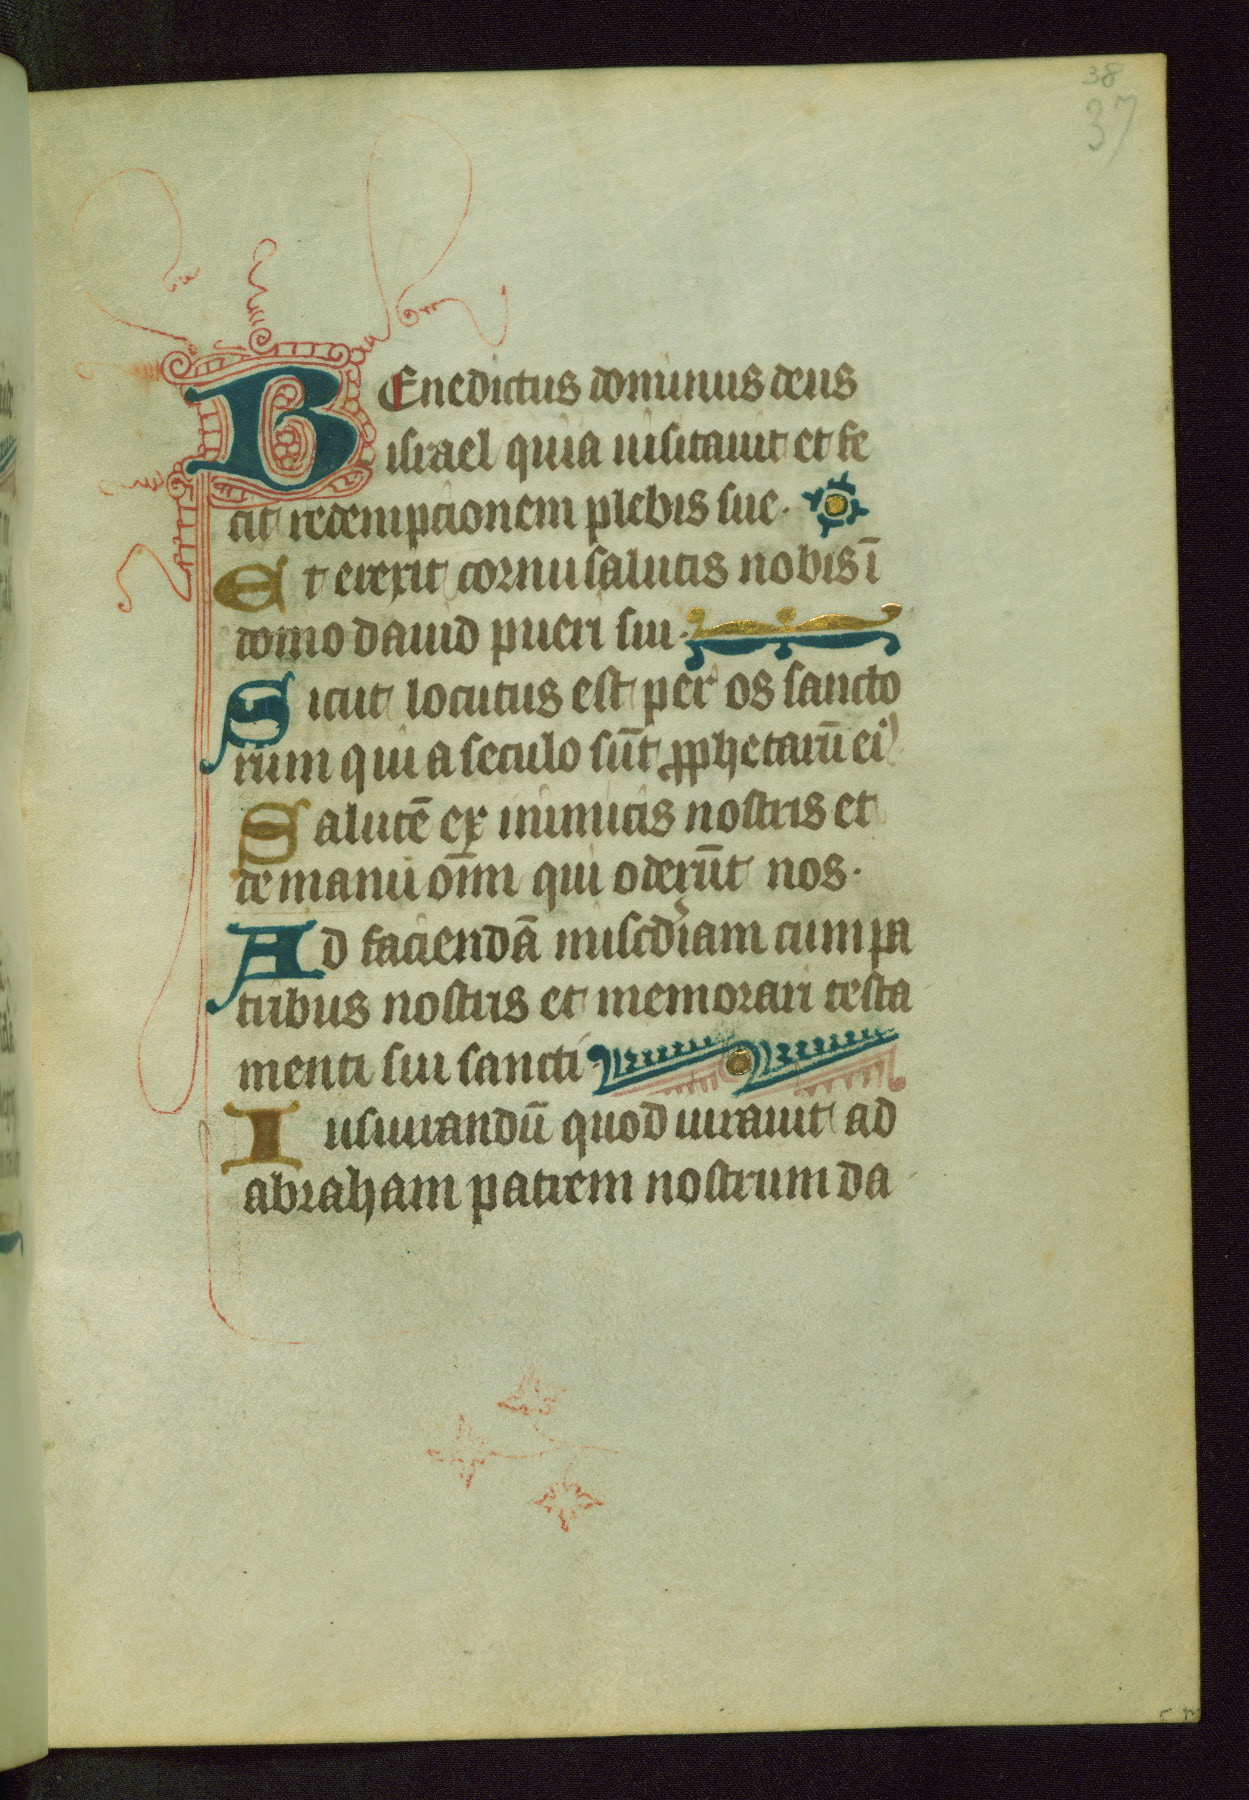 38
37
BEnedictus dominus deus
israel quia uisitauit et fe
cit redempcionem plebis sue.
Et erexit cornu salutis nobis ī
domo dauid pueri sui.
Sicut locutus est per os sancto
rum qui a seculo sūt ꝓphetarū ei
Salutē ex inimicis nostris et
de manu oīm qui oderūt nos.
Ad faciendā miscdiam cum pa
tribus nostris et memorari testa
menti sui sancti.
Iusiurandū quod iurauit ad
abraham patrem nostrum da